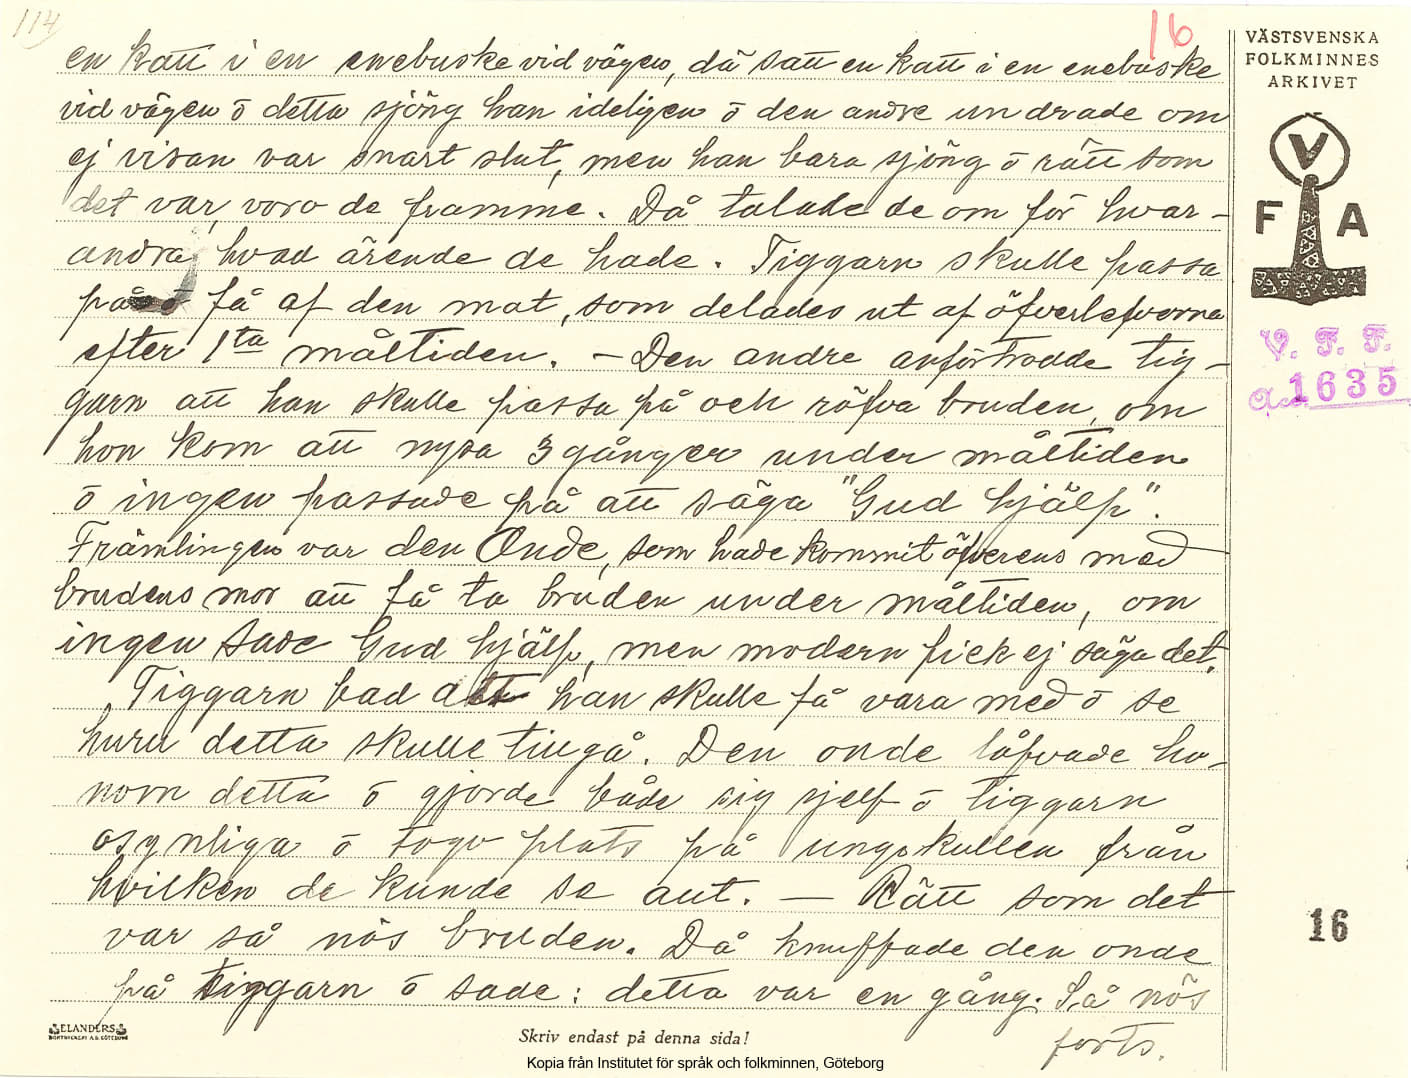 114
16
VÄSTSVENSKA
FOLKMINNES
ARKIVET
V
F A
V. F. F.
1635
en katt i en enebuske vid vägen, då satt en katt i en enebuske
vid vägen ō detta sjöng han ideligen ō den andre undrade om
ej visan var snart slut, men han bara sjöng ō rätt som
det var, voro de framme. Då talade de om för hvar-
andra hvad ärende de hade. Tiggarn skulle passa
på ō få af den mat, som delades ut af öfverlefvorna
efter 1ta måltiden. – Den andre anförtrodde tig-
garn att han skulle passa på och röfva bruden, om
hon kom att nysa 3 gånger under måltiden
ō ingen passade på att säga "Gud hjälp".
Främlingen var den Onde, som hade kommit öfverens med
brudens mor att få ta bruden under måltiden, om
ingen sade Gud hjälp, men modern fick ej säga det.
Tiggarn bad att han skulle få vara med ō se
huru detta skulle tillgå. Den onde låfvade ho-
nom detta ō gjorde både sig sjelf ō tiggarn
osynliga ō togo plats på ungskullen från
hvilken de kunde se allt. — Rätt som det
var så nös bruden. Då knuffade den onde
på tiggarn ō sade: detta var en gång. Så nös
forts.
16
ELANDERS
BOKTRYCKERI A.B. GÖTEBORG
Skriv endast på denna sida!
Kopia från Institutet för språk och folkminnen, Göteborg